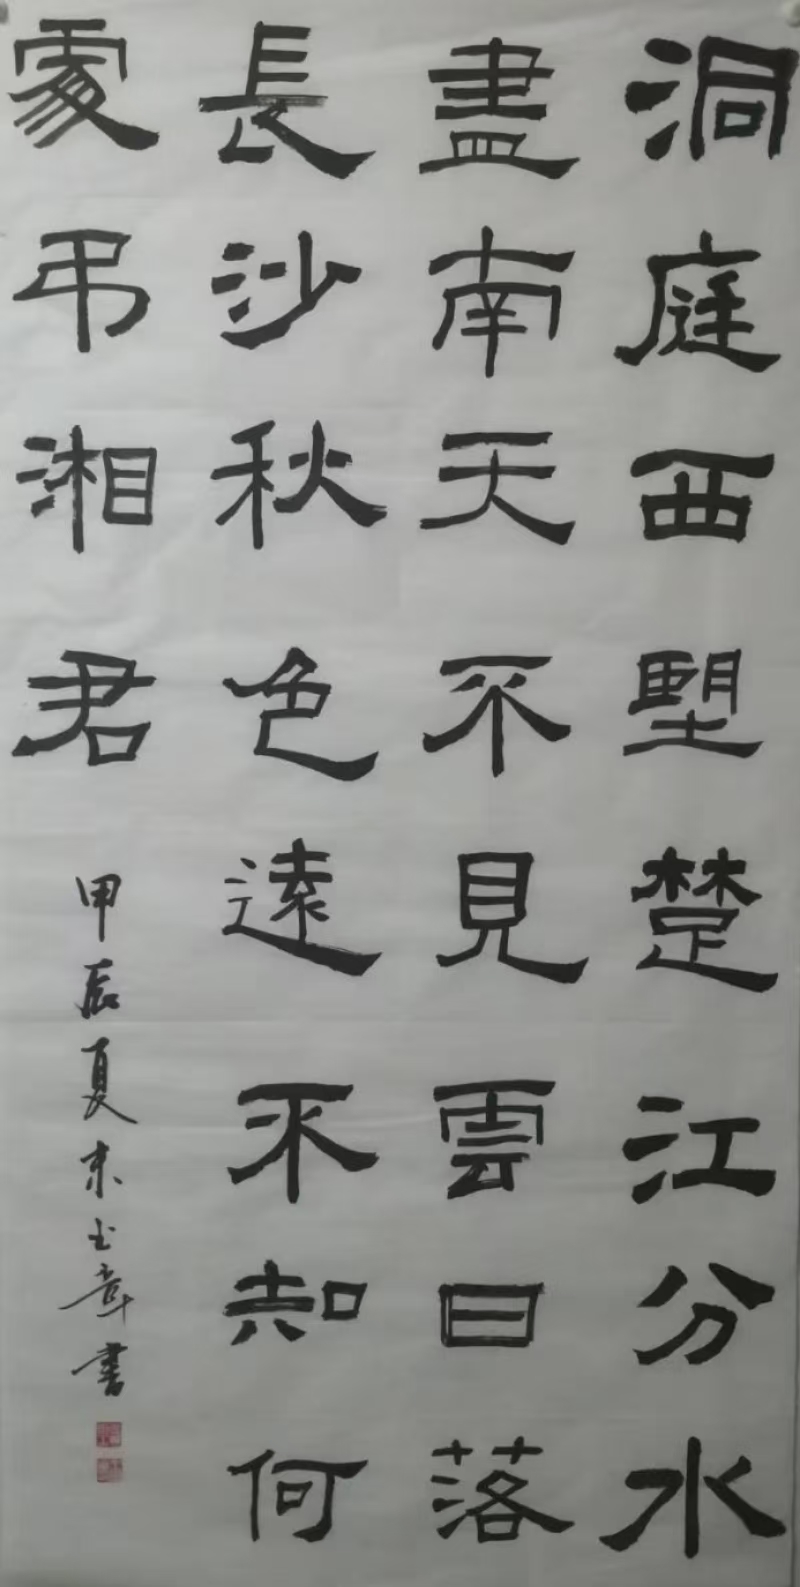 洞庭西朢楚江分水
盡南天不見雲日落
長沙秋色遠不知何
處弔湘君
甲辰夏朱玉章書